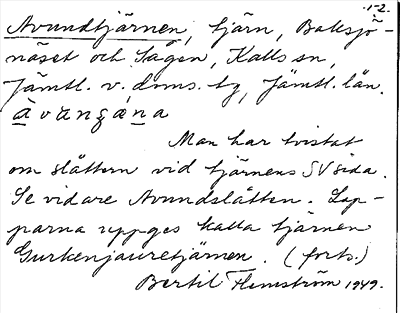 1-2.
Avundtjärnen, tjärn, Baksjö-
näset och Sågen, Kalls sn,
Jämtl. v. doms. tg, Jämtl. län.
Man har tvistat
om slåttern vid tjärnens SV sida.
Se vidare Avundslåtten. Lap-
parna uppges kalla tjärnen
Gurkenjauretjärnen. (forts.)
Bertil Flemström 1949.